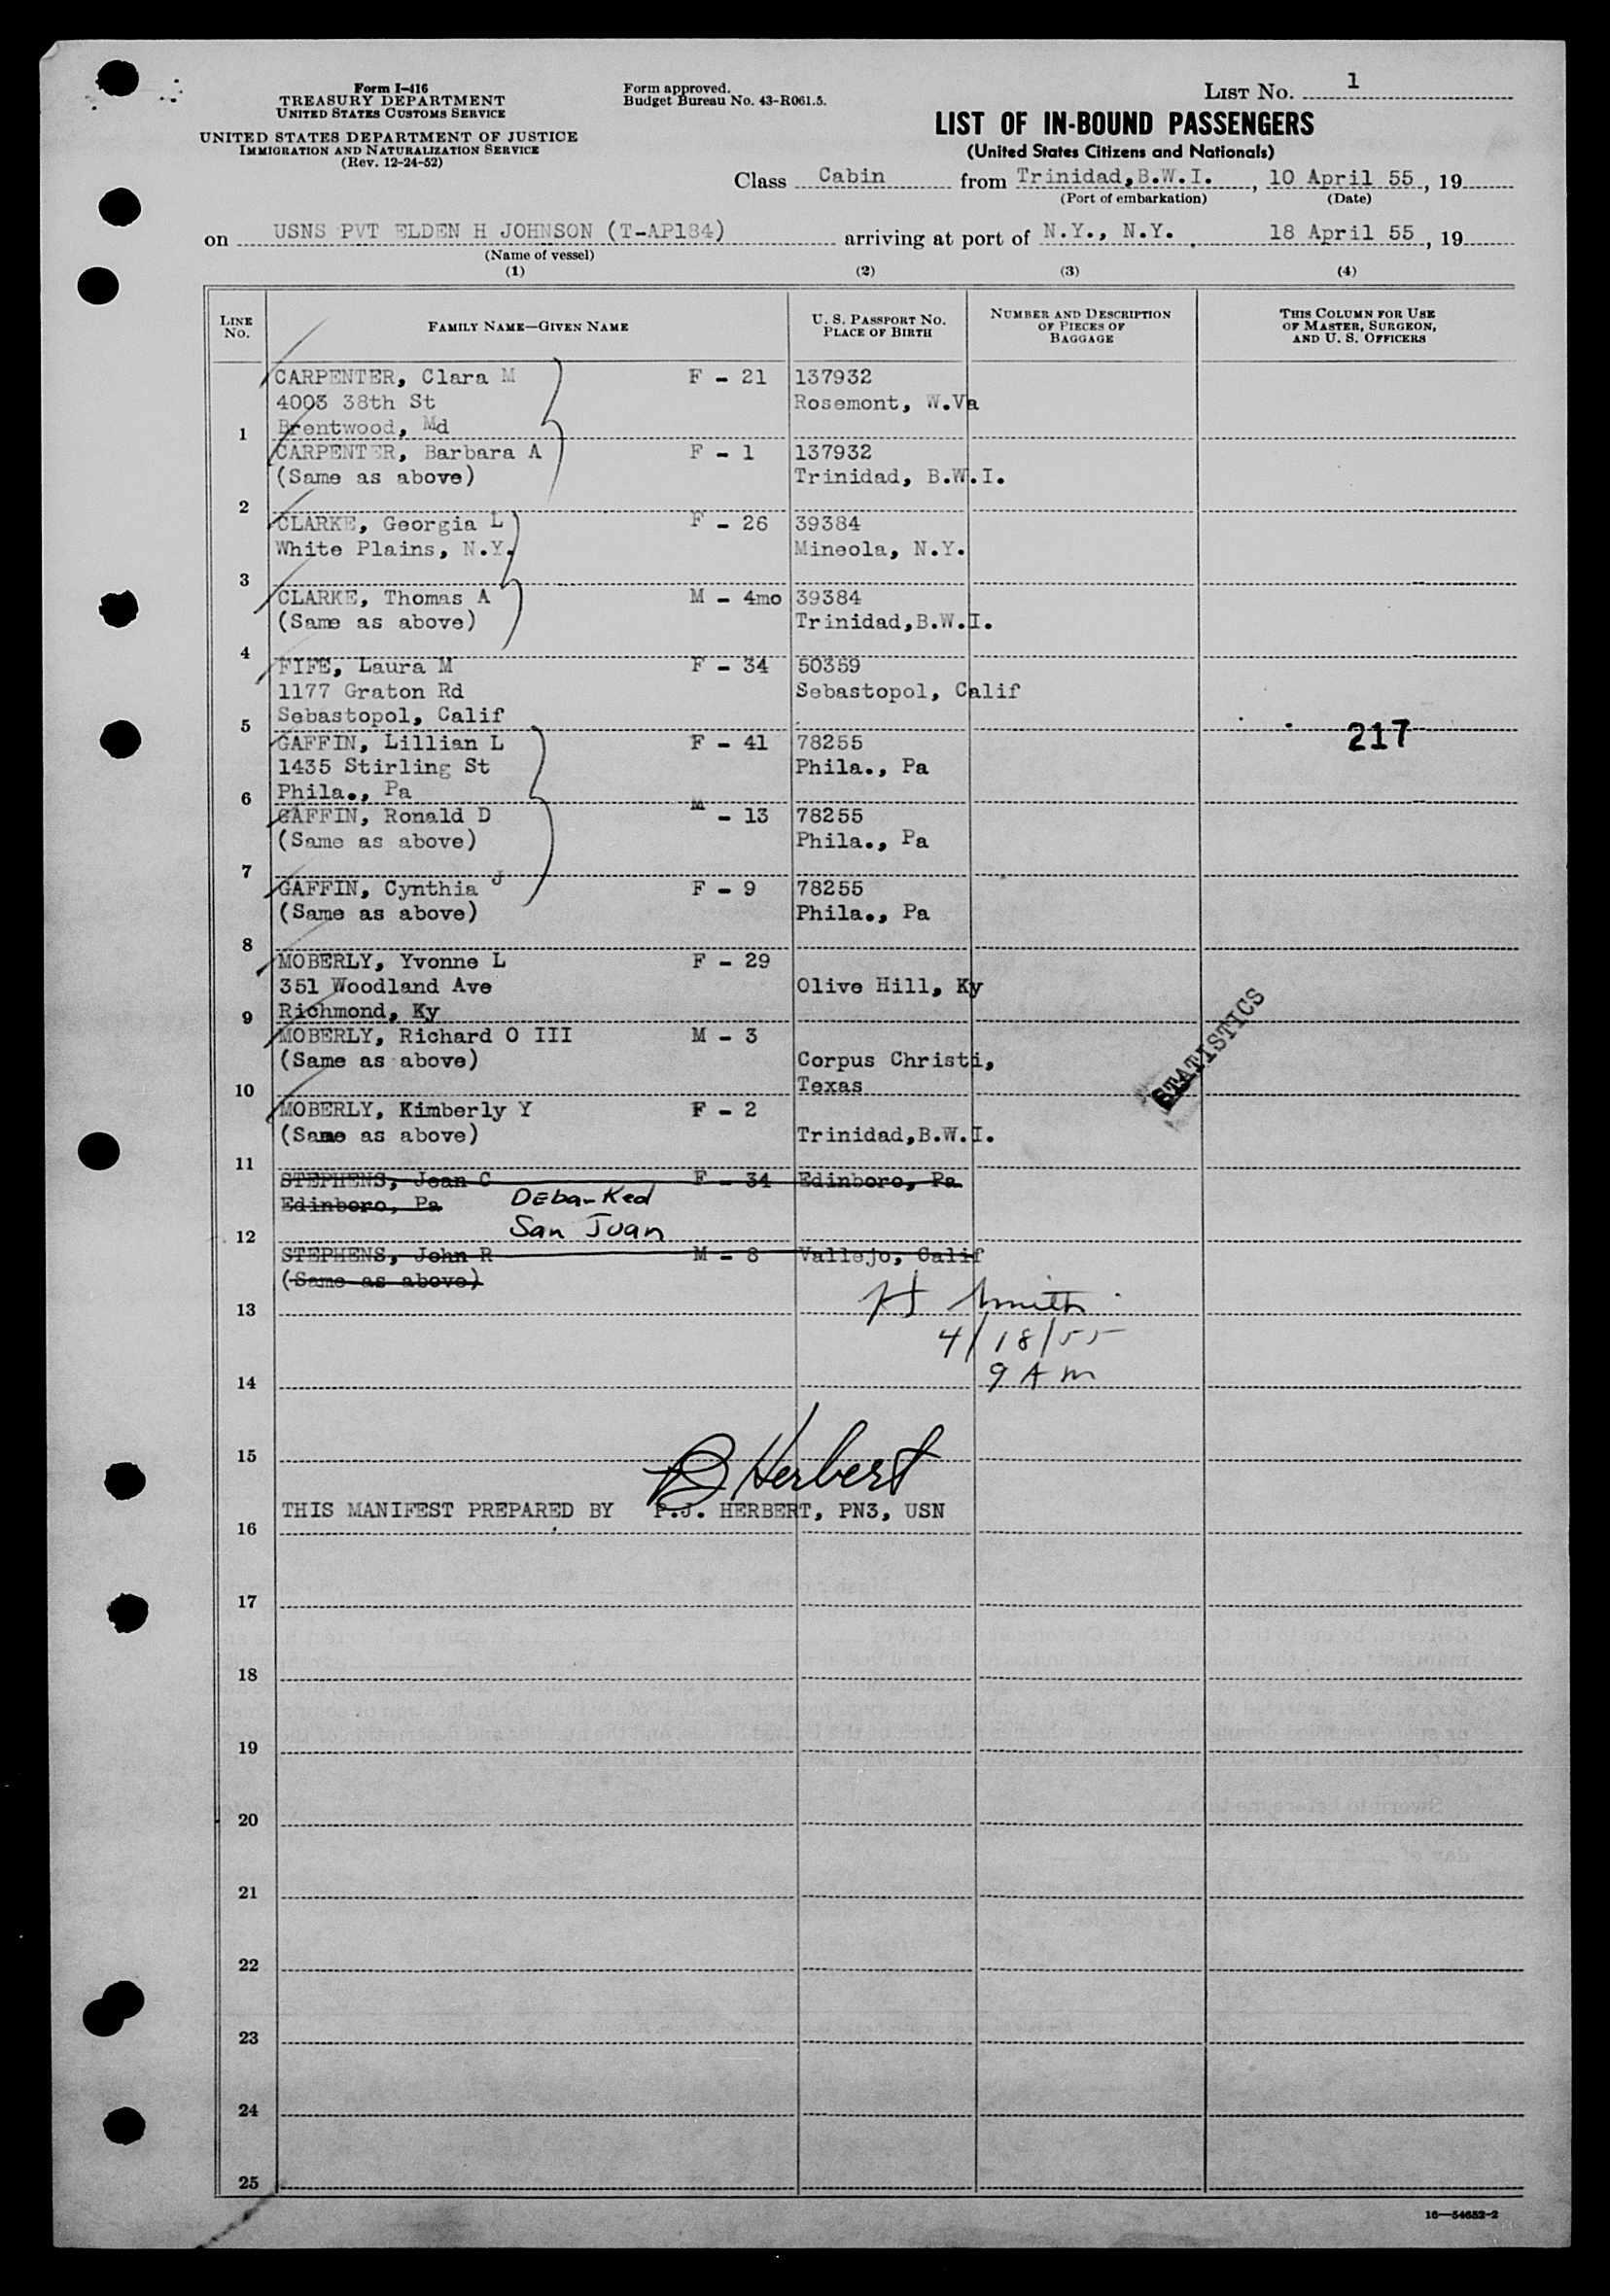 Form I-416
TREASURY DEPARTMENT
UNITED STATES CUSTOMS SERVICE
UNITED STATES DEPARTMENT OF JUSTICE
IMMIGRATION AND NATURALIZATION SERVICE
(Rev. 12-24-52)
Form approved.
Budget Bureau No. 43-R061.5.
LIST NO. 1
LIST OF IN-BOUND PASSENGERS
(United States Citizens and Nationals)
Class Cabin from Trinidad,B.W.I., 10 April 55, 19
(Port of embarkation) (Date)
on USNS PVT ELDEN H JOHNSON (T-AP184) arriving at port of N.Y., N.Y. , 18 April 55, 19
(Name of vessel)
(1) (2) (3) (4)
LINE NO.
FAMILY NAME—GIVEN NAME
U. S. PASSPORT NO.
PLACE OF BIRTH
NUMBER AND DESCRIPTION
OF PIECES OF
BAGGAGE
THIS COLUMN FOR USE
OF MASTER, SURGEON,
AND U. S. OFFICERS
CARPENTER, Clara M F - 21 137932
4003 38th St Rosemont, W.Va
1 Brentwood, Md
CARPENTER, Barbara A F - 1 137932
(Same as above) Trinidad, B.W.I.
2
CLARKE, Georgia L F - 26 39384
White Plains, N.Y. Mineola, N.Y.
3
CLARKE, Thomas A M - 4mo 39384
(Same as above) Trinidad,B.W.I.
4
FIFE, Laura M F - 34 50359
1177 Graton Rd Sebastopol, Calif
5 Sebastopol, Calif
GAFFIN, Lillian L F - 41 78255 217
1435 Stirling St Phila., Pa
6 Phila., Pa
GAFFIN, Ronald D M - 13 78255
(Same as above) Phila., Pa
7
GAFFIN, Cynthia J F - 9 78255
(Same as above) Phila., Pa
8
MOBERLY, Yvonne L F - 29
351 Woodland Ave Olive Hill, Ky
9 Richmond, Ky
MOBERLY, Richard O III M - 3
(Same as above) Corpus Christi,
10 Texas
STATISTICS
MOBERLY, Kimberly Y F - 2
(Same as above) Trinidad,B.W.I.
11
STEPHENS, Jean C F - 34 Edinboro, Pa
Edinboro, Pa Debarked
12 San Juan
STEPHENS, John R M - 8 Vallejo, Calif
(Same as above)
13 H Smith
4/18/55
14 9 AM
15 Herbert
THIS MANIFEST PREPARED BY P.J. HERBERT, PN3, USN
16
17
18
19
20
21
22
23
24
25
16—54652-2